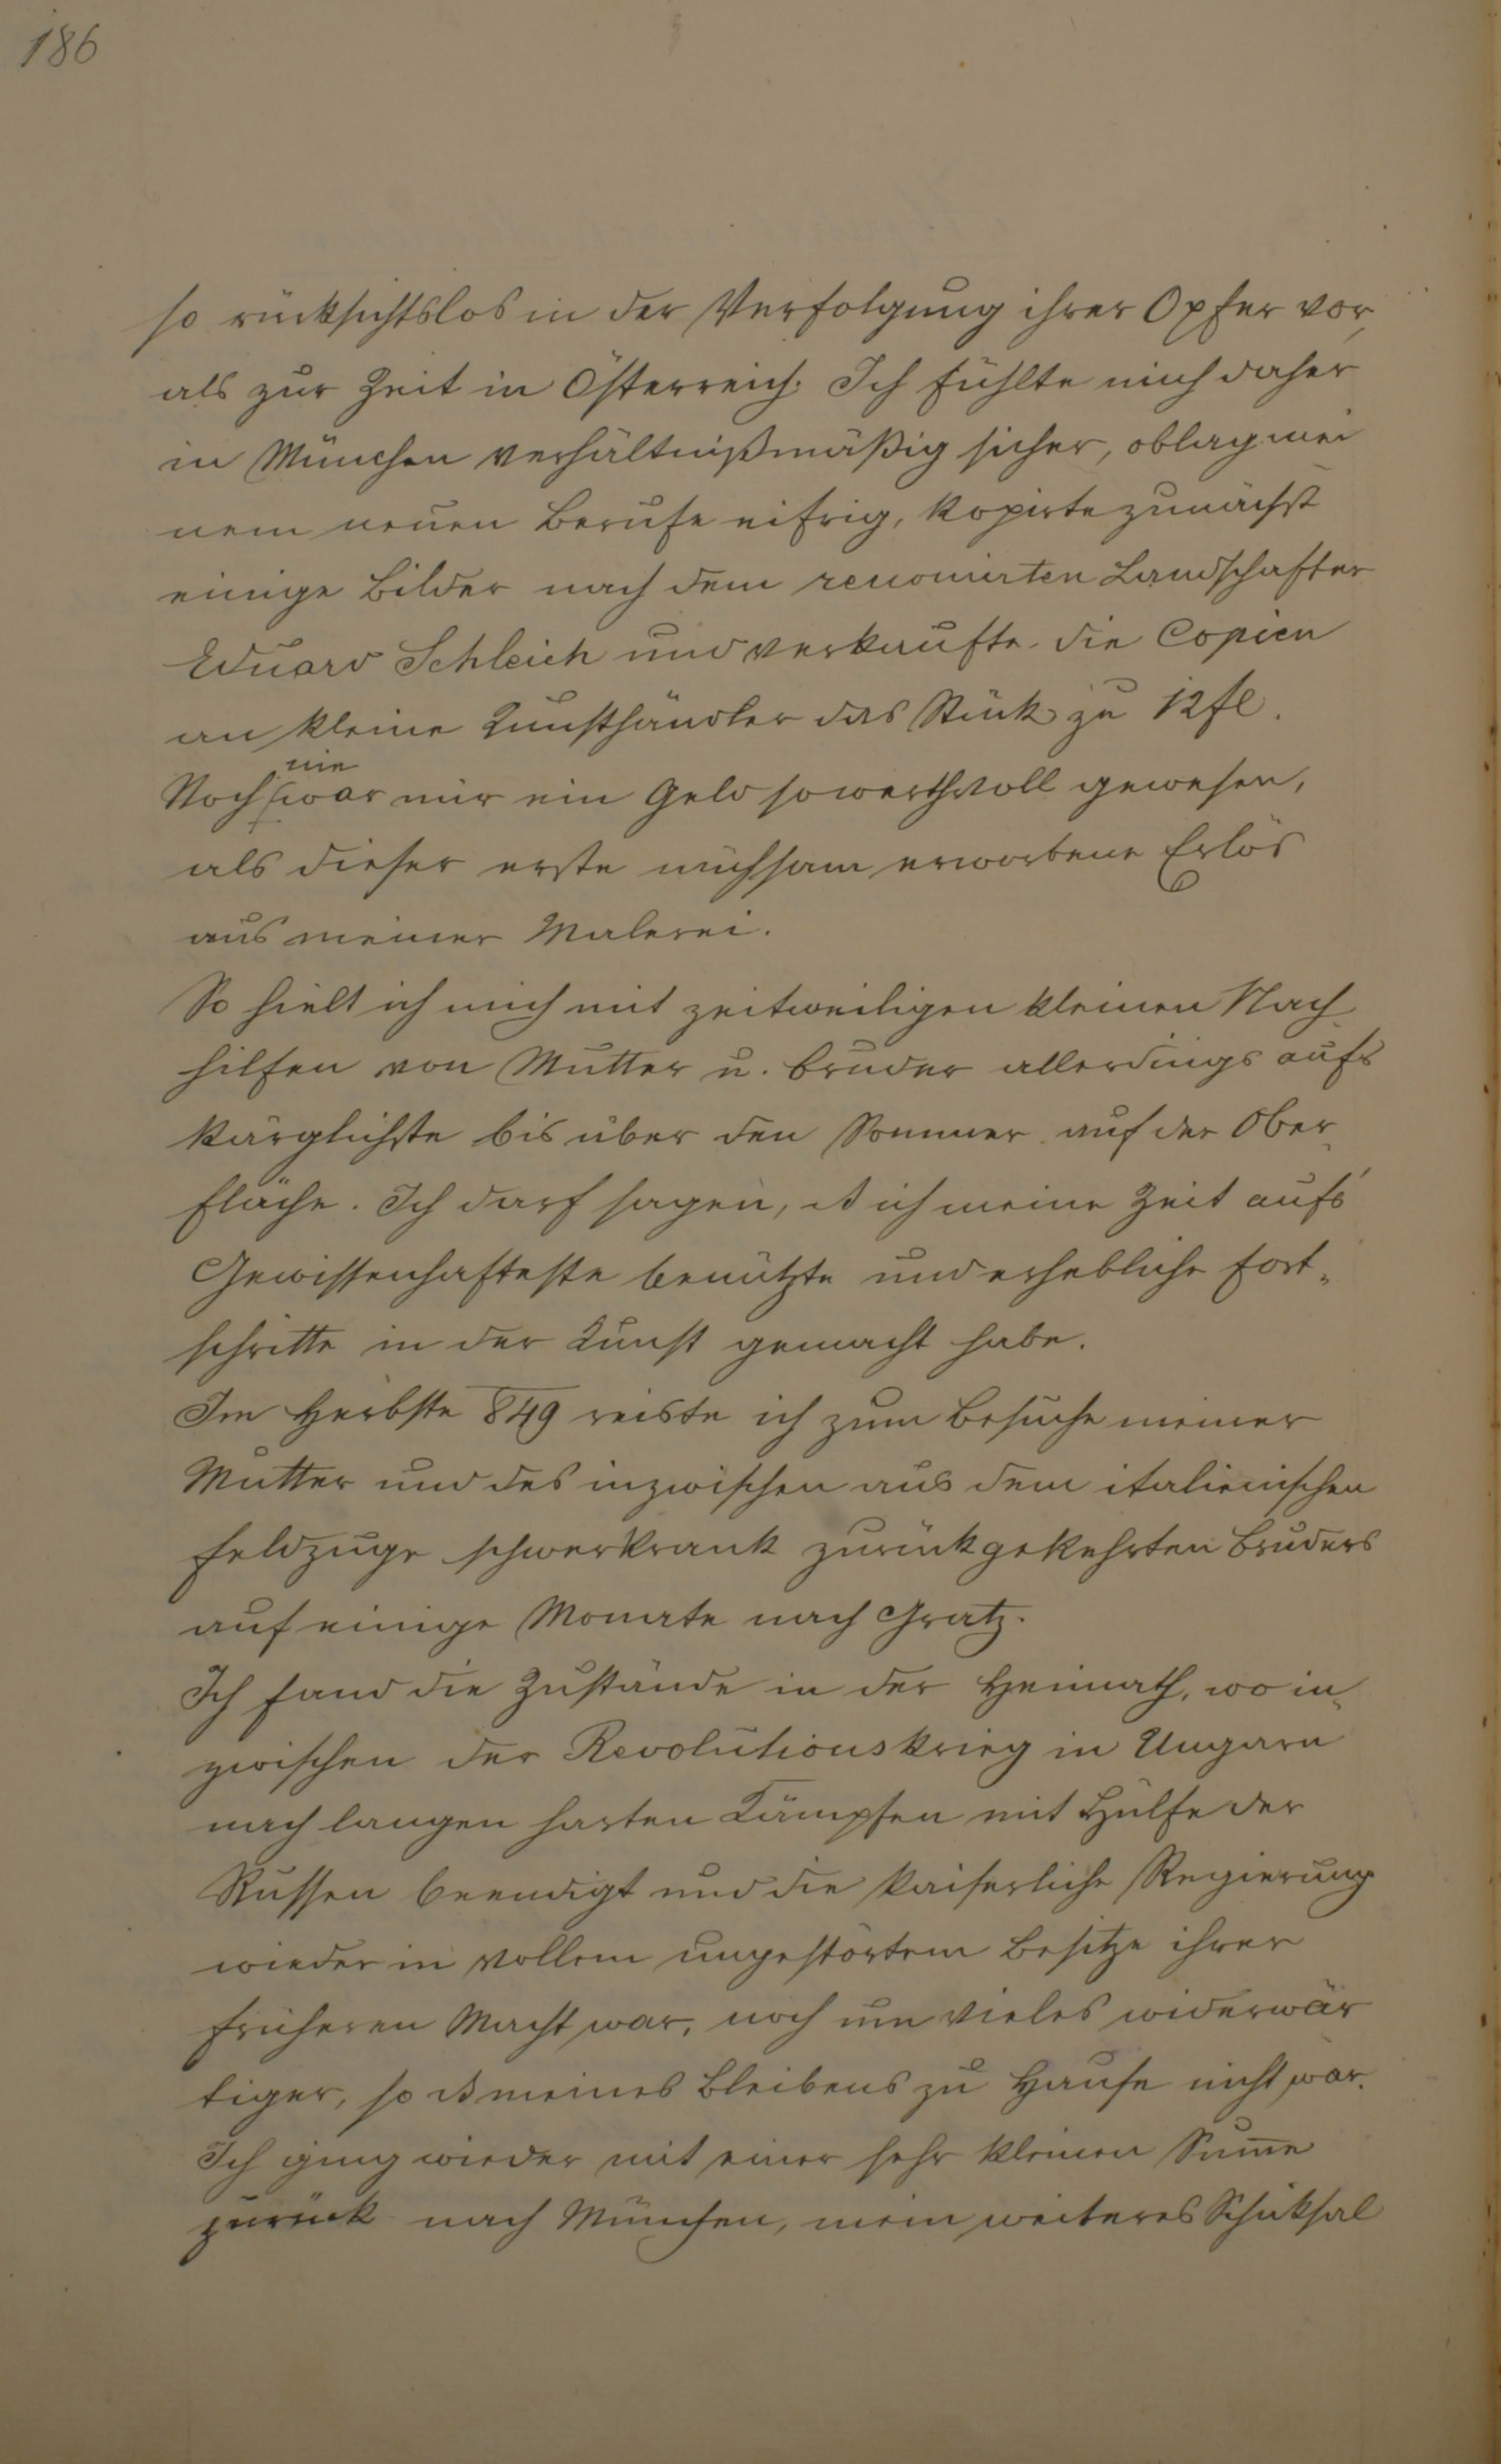 186
so rücksichtslos in der Verfolgung ihrer Opfer vor,
als zur Zeit in Österreich. Ich fühlte mich daher
in München verhältnißmäßig sicher, oblag mei
nem neuen Berufe eifrig, kopirte zunächst
einige Bilder nach dem renomirten Landschafter
Eduard Schleich und verkaufte die Copien
an kleine Kunsthändler das Stück zu 12 fl.
nie
Noch war mir ein Geld so werthvoll gewesen,
als dieser erste mühsam erworbene Erlös
aus meiner Malerei.
So hielt ich mich mit zeitweiligen kleinen Nach
hilfen von Mutter u. Bruder allerdings aufs
kärglichste bis über den Sommer auf der Ober„
fläche. Ich darf sagen, ß ich meine Zeit aufs
Gewissenhafteste benützte und erhebliche Fort„
schritte in der Kunst gemacht habe.
Im Herbste 849 reiste ich zum Besuche meiner
Mutter und des inzwischen aus dem italienischen
Feldzuge schwerkrank zurückgekehrten Bruders
auf einige Monate nach Gratz.
Ich fand die Zustände in der Heimath, wo in„
zwischen der Revolutionskrieg in Ungarn
nach langen harten Kämpfen mit Hülfe der
Russen beendigt und die kaiserliche Regierung
wieder in vollem ungestörtem Besitze ihrer
früheren Macht war, noch um vieles widerwär
tiger, so ß meines Bleibens zu Hause nicht war.
Ich ging wieder mit einer sehr kleinen Sum̅e
zurück nach München, mein weiteres Schicksal